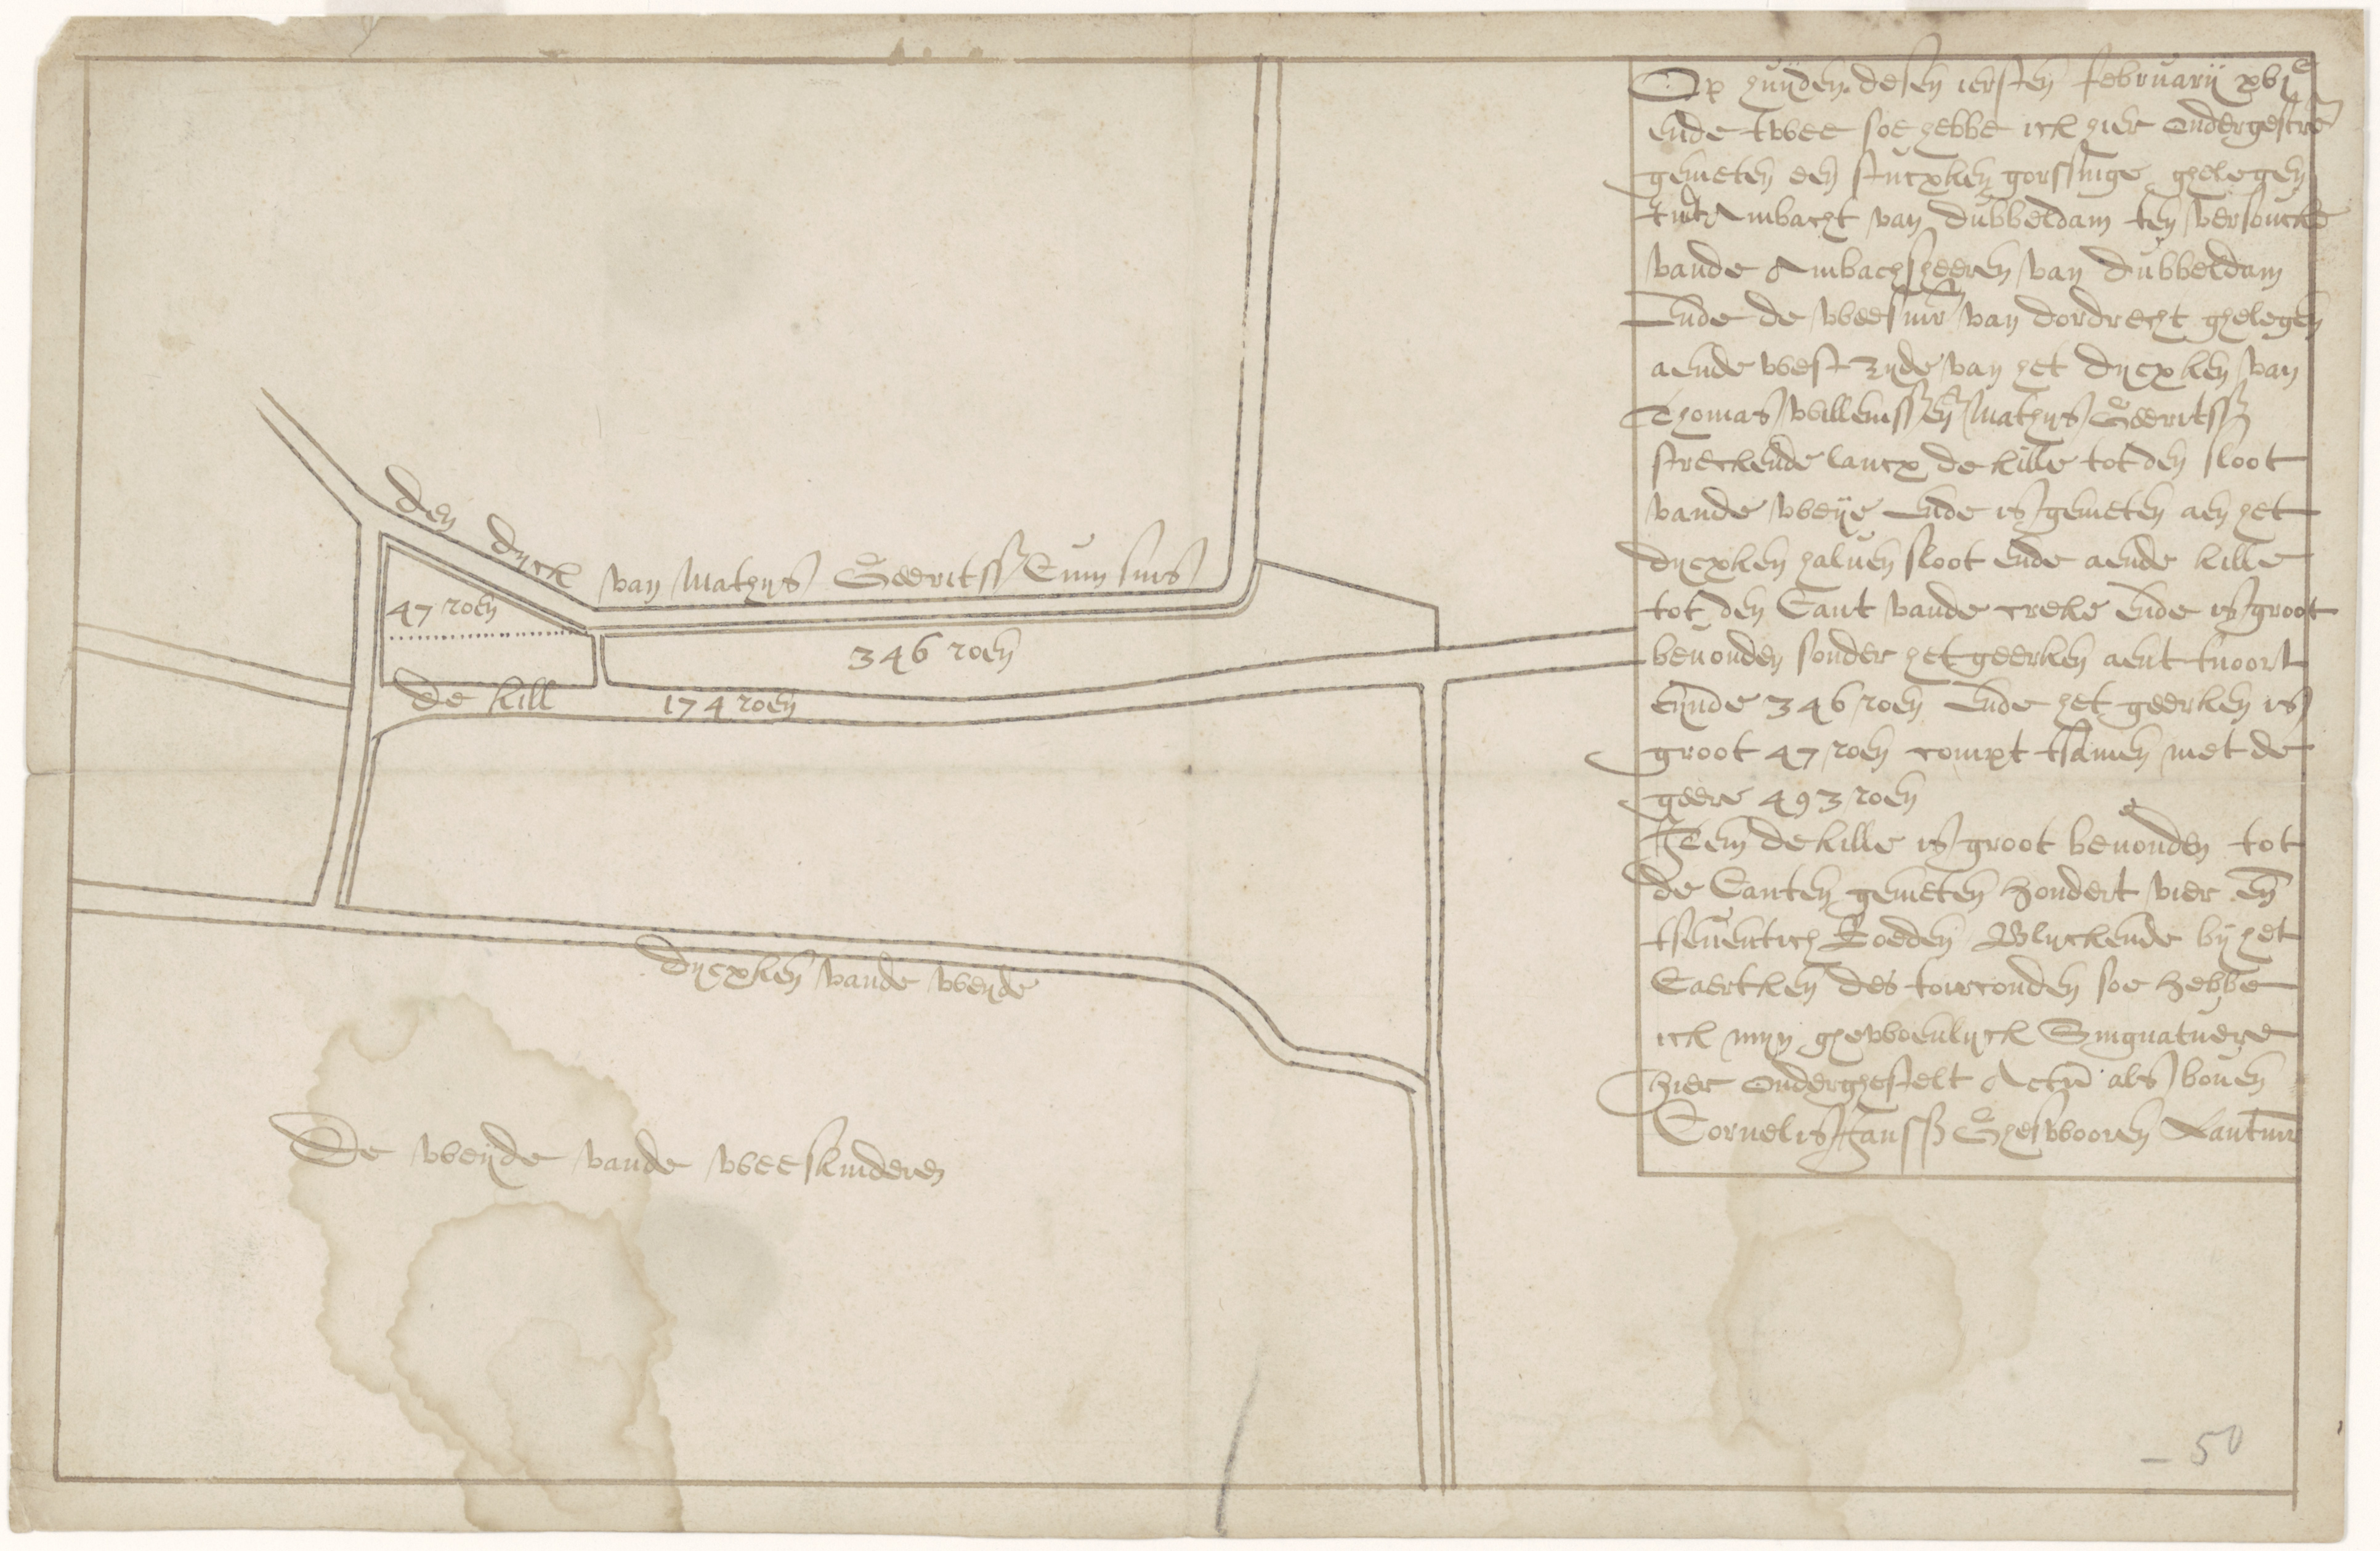 Den dijck van Mathijs Geeritss Cum suis
47 roen
346 roen
de kill
174 roen
Dijcxken vande weijde
De weijde vande weeskinderen
Op huijden desen iersten februarij xvjc
ende twee soe hebbe ick hier ondergescre
gemeten een stucxken gorssinge ghelegen
int Ambacht van Dubbeldam ten versoucke
vande Ambachsheeren van Dubbeldam
Ende de weesmrs van dordrecht ghelegen
aende west zijde van het dijcxken van
Thomas Willemss en Mathijs Geeritss
streckende lancx de kille tot den sloot
vande weije Ende is gemeten aen het
dijcxken haluen sloot ende aende kille
tot den Cant vande creke Ende is groot
beuonden sonder het geerken aent noort
eijnde 346 roen Ende het geerken is
groot 47 roen compt tsamen met de
geere 493 roen
Item de kille is groot beuonden tot
de Canten gemeten hondert vier en
tseuentich Roeden Blijckende bij het
Caertken des toirconden soe hebbe
ick mijn ghewoenlijck Singnatuere
hier onderghestelt Actu als bouen
Cornelis Janss Ghesworen Lantmr
50